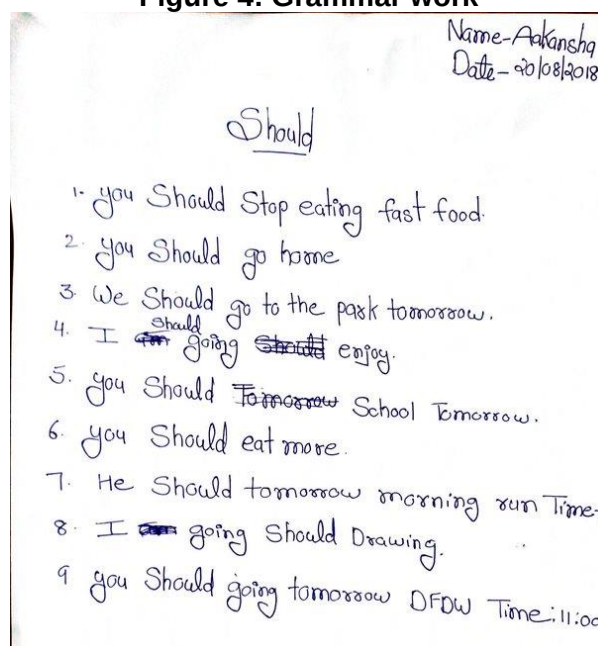 Figure 4. Grammar work
Name-Aakansha
Date-20/08/2018
Should
1. you Should Stop eating fast food.
2. you Should go home
3. We Should go to the park tomorrow.
4. I Should going enjoy.
5. you Should School Tomorrow.
6. you Should eat more.
7. He Should tomorrow morning run Time-
8. I going Should Drawing.
9 you Should going tomorrow DFDW Time:11:00